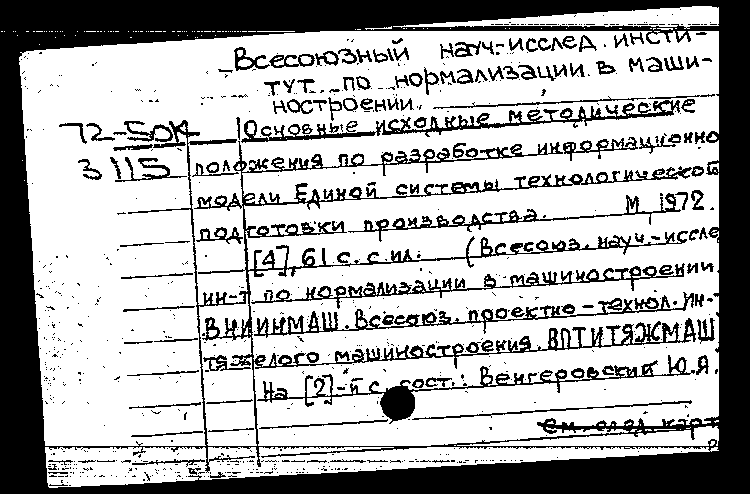 Всесоюзный науч.-исслед. инсти-
тут по нормализации в маши-
ностроении.
72-50К Основные исходные методические
3 115 положения по разработке информационно
модели Единой системы технологической
подготовки производства. М, 1972.
[4], 61 с. с ил. (Всесоюз. науч.-иссле
ин-т по нормализации в машиностроении.
ВНИИНМАШ. Всесоюз. проектно-технол. ин-т
тяжелого машиностроения. ВПТИТЯЖМАШ
На [2]-й с. сост.: Венгеровский Ю.Я.
см. след. карт